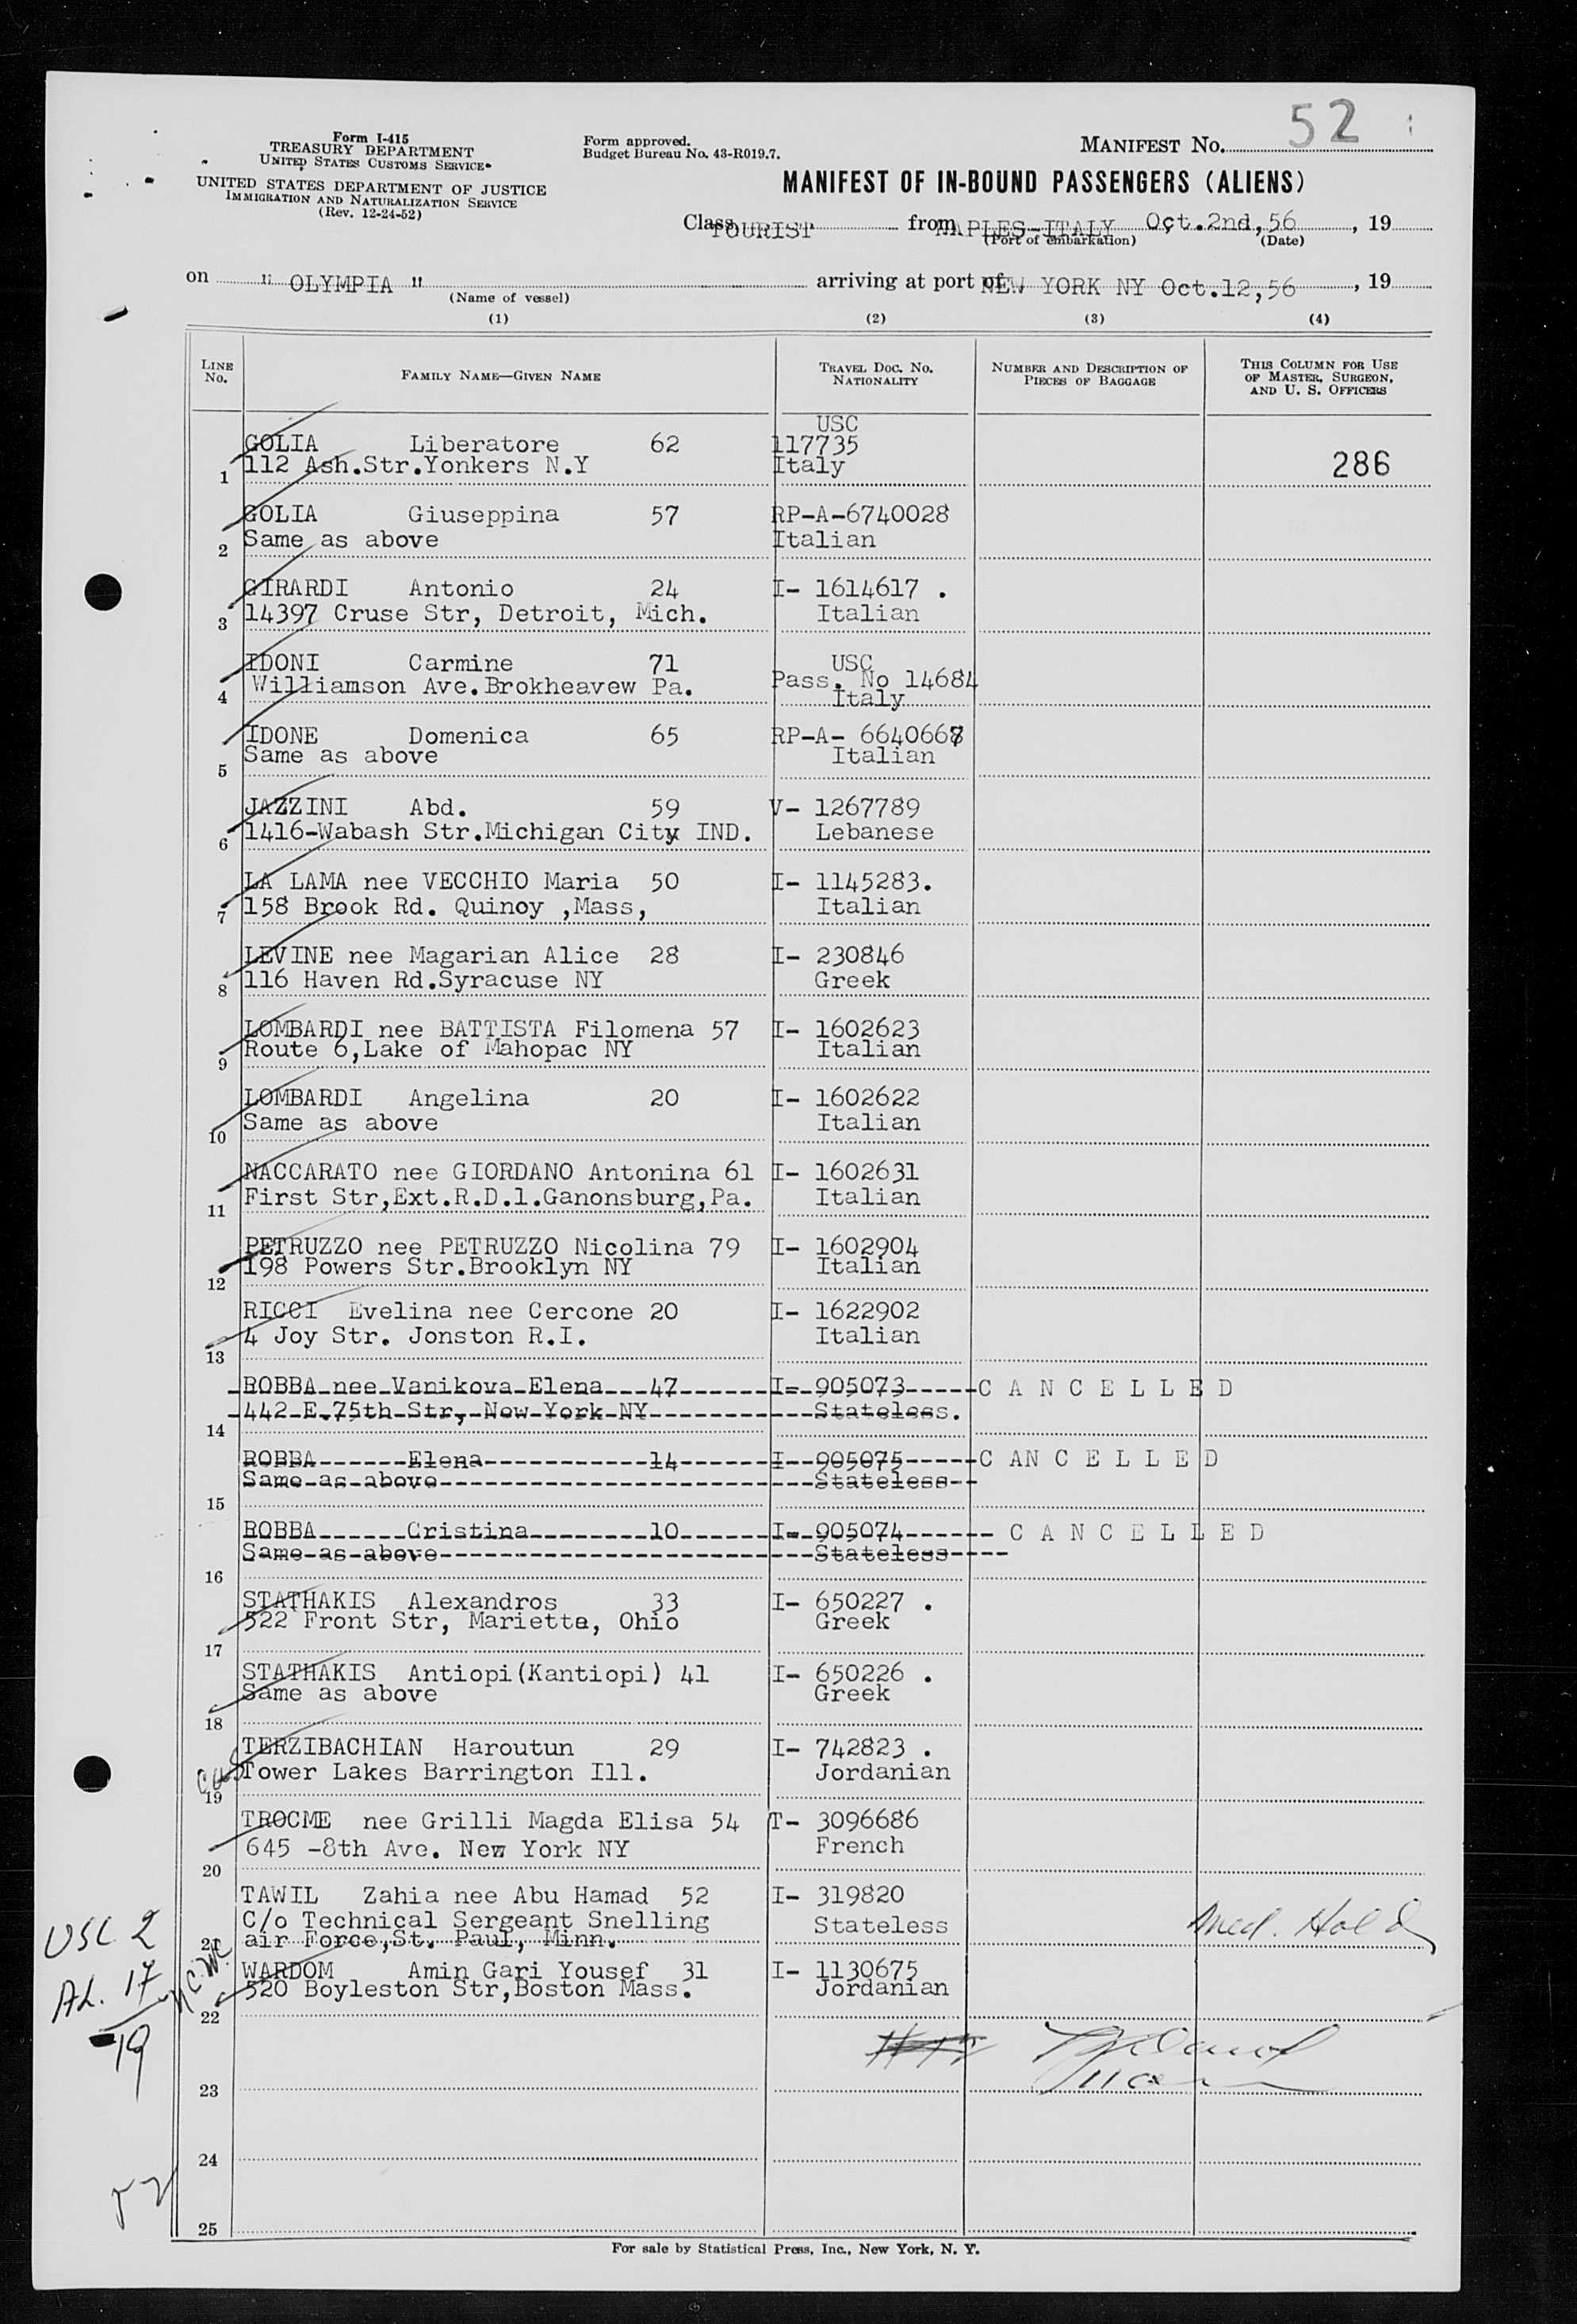 52
Form I-415
TREASURY DEPARTMENT
UNITED STATES CUSTOMS SERVICE
UNITED STATES DEPARTMENT OF JUSTICE
IMMIGRATION AND NATURALIZATION SERVICE
(Rev. 12-24-52)
Form approved.
Budget Bureau No. 43-R019.7.
MANIFEST No.
MANIFEST OF IN-BOUND PASSENGERS (ALIENS)
Class TOURIST from NAPLES-ITALY Oct.2nd,56, 19
(Port of embarkation) (Date)
on " OLYMPIA " arriving at port of NEW YORK NY Oct.12,56, 19
(Name of vessel)
(1) (2) (3) (4)
LINE No. FAMILY NAME—GIVEN NAME TRAVEL DOC. NO. NATIONALITY NUMBER AND DESCRIPTION OF PIECES OF BAGGAGE THIS COLUMN FOR USE OF MASTER, SURGEON, AND U. S. OFFICERS
USC
GOLIA Liberatore 62 117735
1 112 Ash.Str.Yonkers N.Y Italy 286
GOLIA Giuseppina 57 RP-A-6740028
2 Same as above Italian
GIRARDI Antonio 24 I- 1614617 .
3 14397 Cruse Str, Detroit, Mich. Italian
IDONI Carmine 71 USC
4 Williamson Ave.Brokheavew Pa. Pass. No 14684
Italy
IDONE Domenica 65 RP-A- 6640668
5 Same as above Italian
JAZZINI Abd. 59 V- 1267789
6 1416-Wabash Str.Michigan City IND. Lebanese
LA LAMA nee VECCHIO Maria 50 I- 1145283.
7 158 Brook Rd. Quinoy ,Mass, Italian
LEVINE nee Magarian Alice 28 I- 230846
8 116 Haven Rd.Syracuse NY Greek
LOMBARDI nee BATTISTA Filomena 57 I- 1602623
9 Route 6,Lake of Mahopac NY Italian
LOMBARDI Angelina 20 I- 1602622
10 Same as above Italian
NACCARATO nee GIORDANO Antonina 61 I- 1602631
11 First Str,Ext.R.D.1.Ganonsburg,Pa. Italian
PETRUZZO nee PETRUZZO Nicolina 79 I- 1602904
12 198 Powers Str.Brooklyn NY Italian
RICCI Evelina nee Cercone 20 I- 1622902
13 4 Joy Str. Jonston R.I. Italian
ROBBA nee Vanikova Elena 47 I- 905073 C A N C E L L E D
14 442 E.75th Str, New York NY Stateless.
ROBBA Elena 14 I- 905075 C AN C E L L E D
15 Same as above Stateless
ROBBA Cristina 10 I- 905074 C A N C E L L E D
16 Same as above Stateless
STATHAKIS Alexandros 33 I- 650227 .
17 522 Front Str, Marietta, Ohio Greek
STATHAKIS Antiopi(Kantiopi) 41 I- 650226 .
18 Same as above Greek
TERZIBACHIAN Haroutun 29 I- 742823 .
19 Tower Lakes Barrington Ill. Jordanian
TROCME nee Grilli Magda Elisa 54 T- 3096686
20 645 -8th Ave. New York NY French
TAWIL Zahia nee Abu Hamad 52 I- 319820
C/o Technical Sergeant Snelling Stateless Med. Hold
21 air Force,St. Paul, Minn.
WARDOM Amin Gari Yousef 31 I- 1130675
22 520 Boyleston Str,Boston Mass. Jordanian
USC 2
AL. 17
19
23
24
52
25
For sale by Statistical Press, Inc., New York, N. Y.